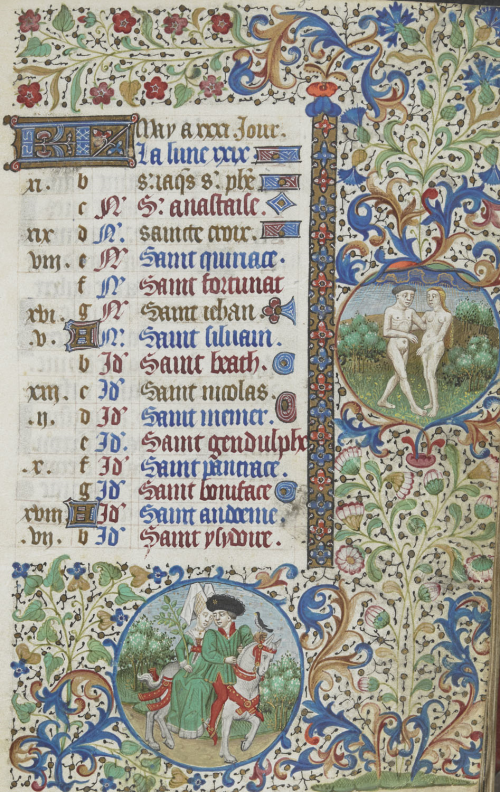 May a xxxi Jour.
La lune xxix
xi. b s. iaq̃s s. phe
c N. S. anastaise.
xix d N. saincte croix.
viii. e N. Saint quiriace.
f N. Saint fortunat
xvi. g N. Saint iehan
.v. A N. Saint siluain.
b Id Saint beath.
xiii. c Id Saint nicolas.
.ii. d Id Saint memer.
e Id. Saint gendulphe
.x. f Id Saint pancrace.
g Id Saint boniface
xviii A Id Saint
.vii. b Id Saint ysydoire.